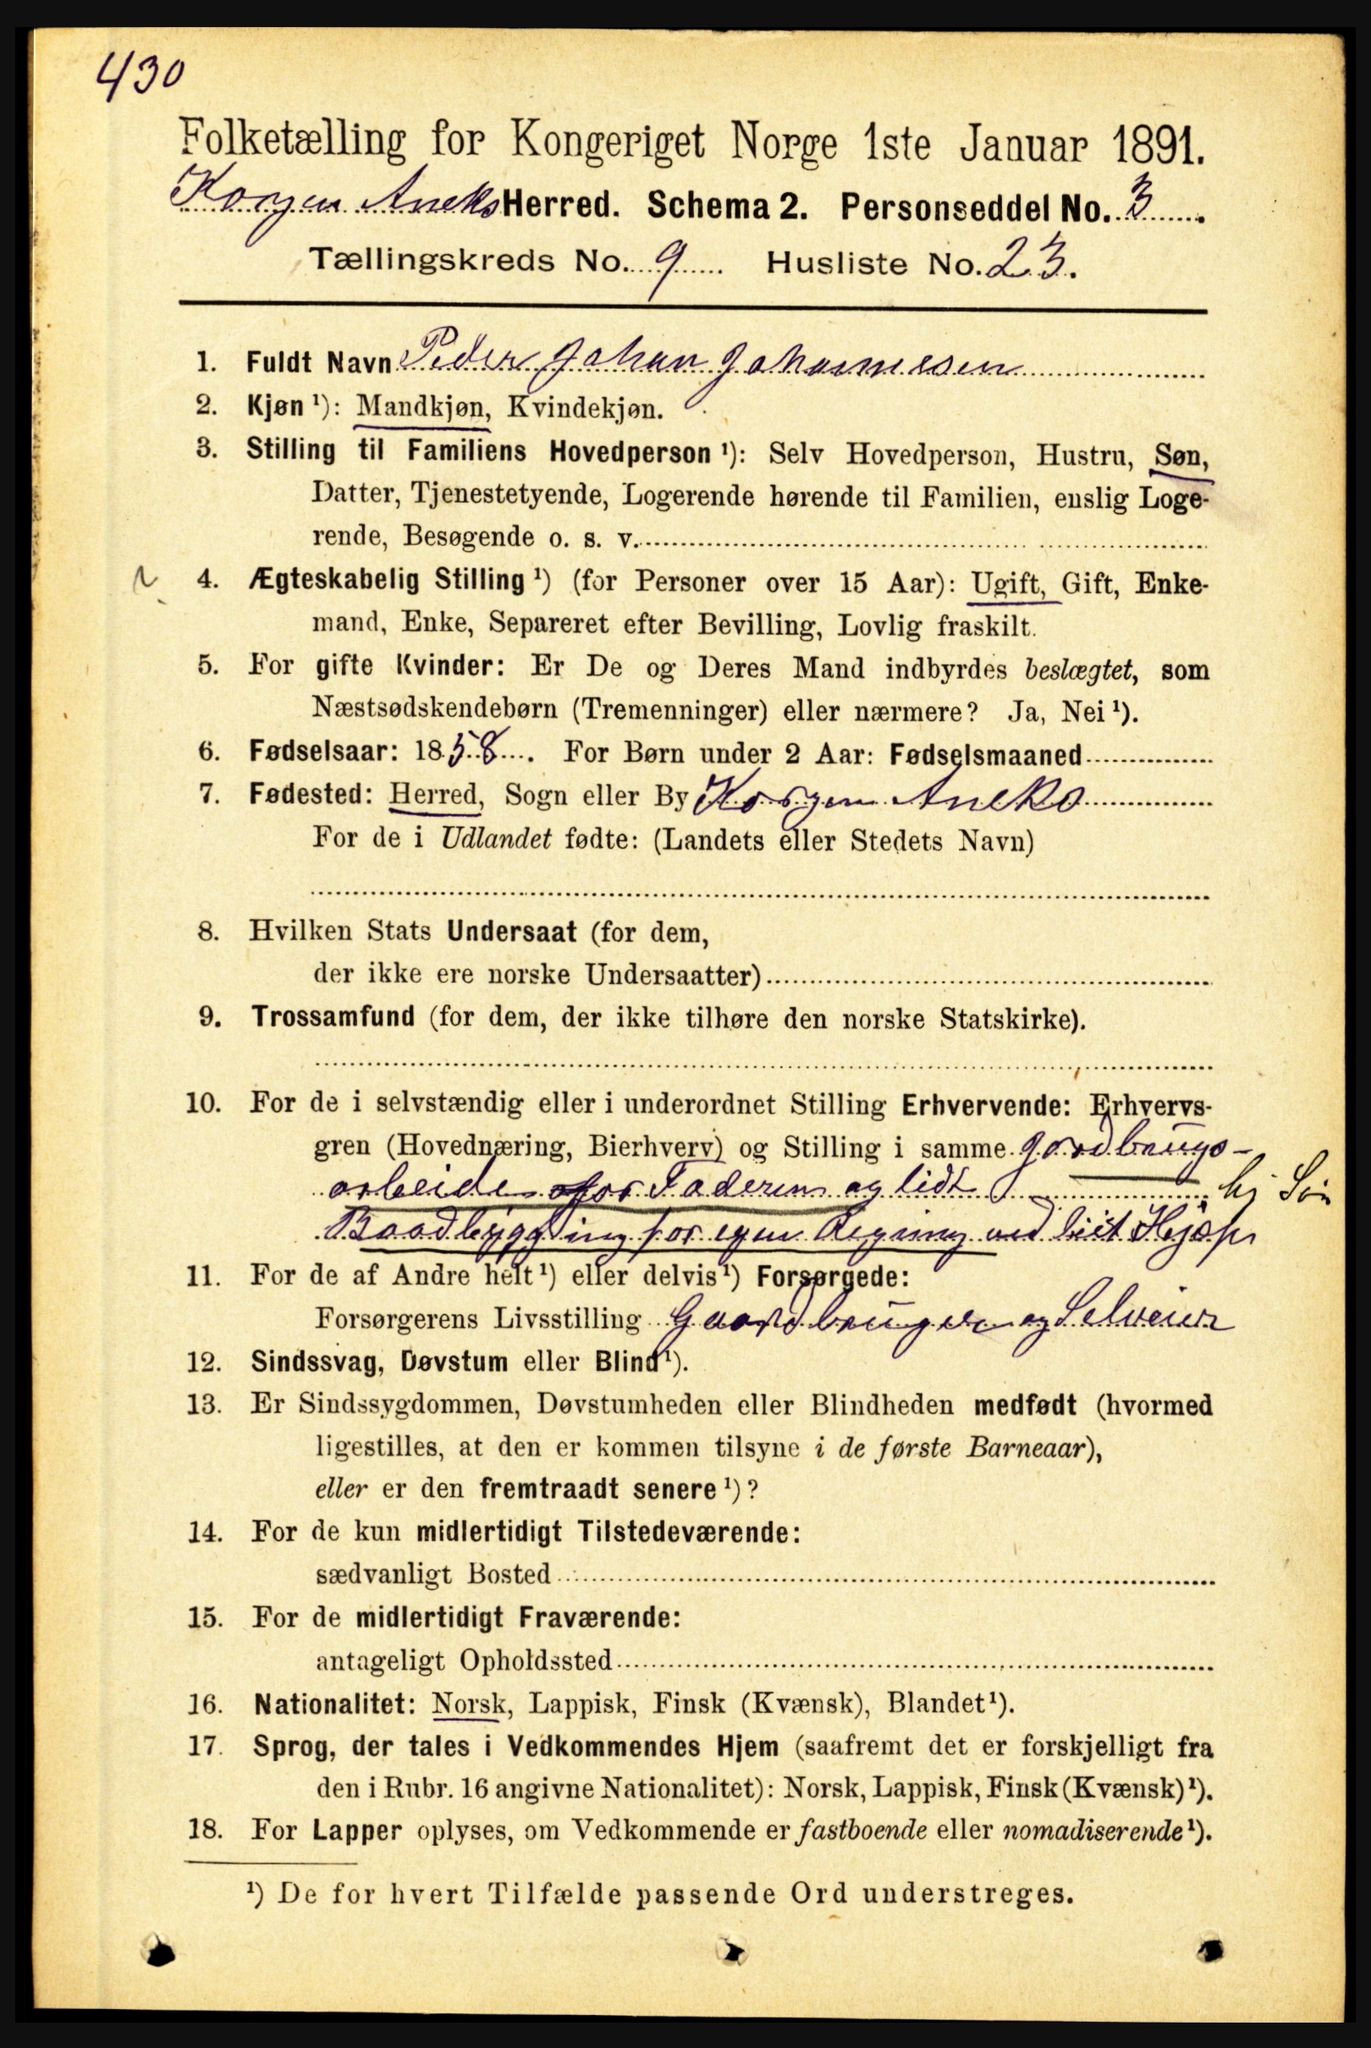 430
Folketælling for Kongeriget Norge 1ste Januar 1891.
Korgen Aneks Herred. Schema 2. Personseddel No. 3.
Tællingskreds No. 9 Husliste No. 23.
1. Fuldt Navn Peder Johan Johannesen
2. Kjøn ¹): Mandkjøn, Kvindekjøn.
3. Stilling til Familiens Hovedperson ¹): Selv Hovedperson, Hustru, Søn,
Datter, Tjenestetyende, Logerende hørende til Familien, enslig Loge-
rende, Besøgende o. s. v.
4. Ægteskabelig Stilling ¹) (for Personer over 15 Aar): Ugift, Gift, Enke-
mand, Enke, Separeret efter Bevilling, Lovlig fraskilt.
5. For gifte Kvinder: Er De og Deres Mand indbyrdes beslægtet, som
Næstsødskendebørn (Tremenninger) eller nærmere? Ja, Nei ¹).
6. Fødselsaar: 1858. For Børn under 2 Aar: Fødselsmaaned
7. Fødested: Herred, Sogn eller By Korgen Aneks
For de i Udlandet fødte: (Landets eller Stedets Navn)
8. Hvilken Stats Undersaat (for dem,
der ikke ere norske Undersaatter)
9. Trossamfund (for dem, der ikke tilhøre den norske Statskirke).
10. For de i selvstændig eller i underordnet Stilling Erhvervende: Erhvervs-
gren (Hovednæring, Bierhverv) og Stilling i samme gordbrugs-
arbeide for Faderen og lidt hj Søn
Baadbygging for egen Regning ved leiet Hjælp
11. For de af Andre helt ¹) eller delvis ¹) Forsørgede:
Forsørgerens Livsstilling Gaardbruger og Selveier
12. Sindssvag, Døvstum eller Blind ¹).
13. Er Sindssygdommen, Døvstumheden eller Blindheden medfødt (hvormed
ligestilles, at den er kommen tilsyne i de første Barneaar),
eller er den fremtraadt senere ¹)?
14. For de kun midlertidigt Tilstedeværende:
sædvanligt Bosted
15. For de midlertidigt Fraværende:
antageligt Opholdssted
16. Nationalitet: Norsk, Lappisk, Finsk (Kvænsk), Blandet ¹).
17. Sprog, der tales i Vedkommendes Hjem (saafremt det er forskjelligt fra
den i Rubr. 16 angivne Nationalitet): Norsk, Lappisk, Finsk (Kvænsk) ¹).
18. For Lapper oplyses, om Vedkommende er fastboende eller nomadiserende ¹).
¹) De for hvert Tilfælde passende Ord understreges.